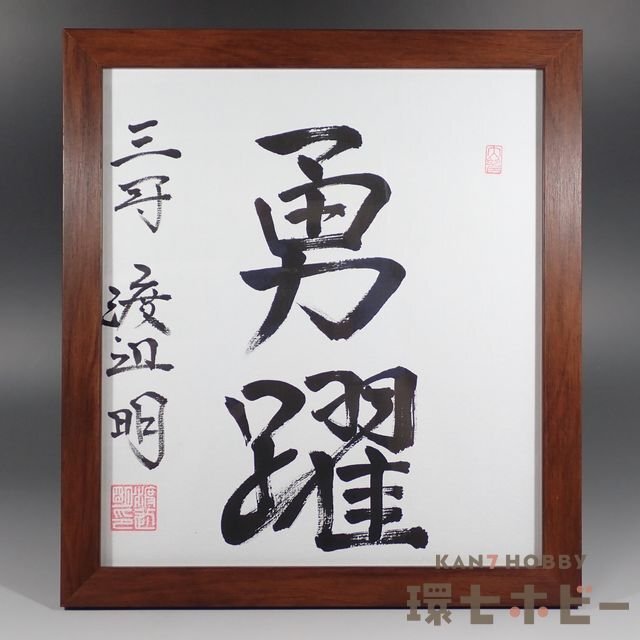 勇躍
三冠 渡辺明
KAN7HOBBY
環七ホビー